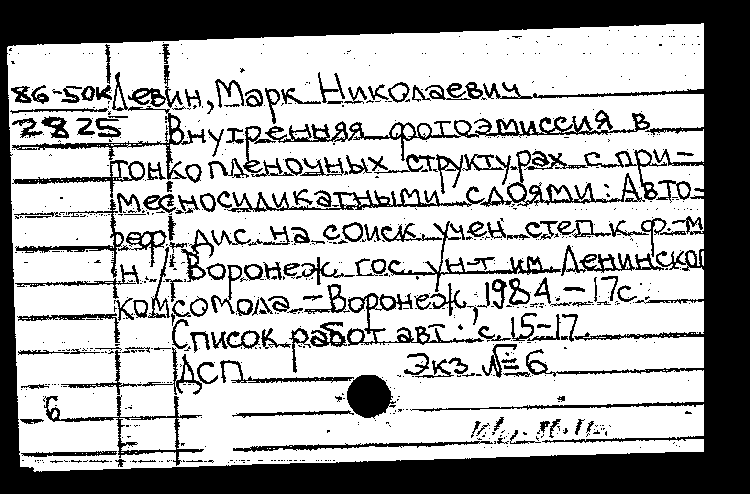 86-50к Левин, Марк Николаевич.
2825 Внутренняя фотоэмиссия в
тонкопленочных структурах с при-
месносиликатными слоями: Авто-
реф. дис. на соиск. учен. степ. к. ф.-м.
н. / Воронеж. гос. ун-т им. Ленинског
комсомола. – Воронеж, 1984. – 17с.
Список работ авт.: с. 15-17.
ДСП Экз. № 6
6